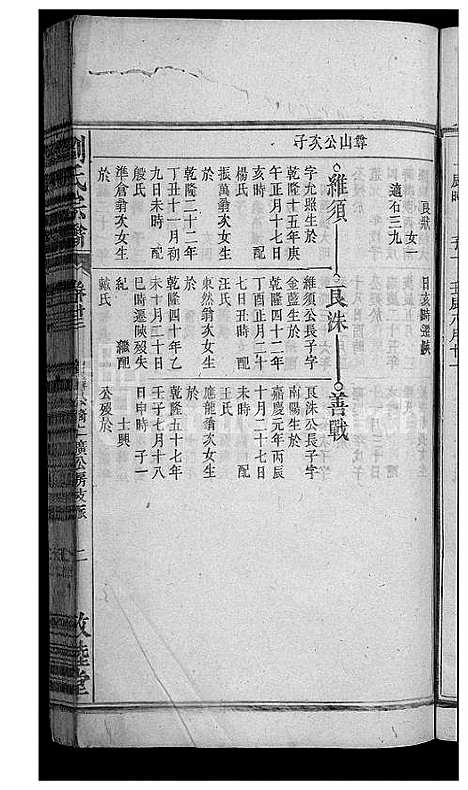 長狀
女一
適石三九
尋山公次子
維須
字允照生於
乾隆十五年庚
午正月十七日
亥時 配
楊氏
振萬翁次女生
於
乾隆二十二年
丁丑十一月初
九日未時 配
殷氏
準倉翁次女生
於
良洙
維須公長子字
金藍生於
乾隆四十二年
丁酉正月二十
七日丑時 配
汪氏
東然翁次女生
於
乾隆四十年乙
未十月二十日
巳時遷陝歿失
紀 繼配
戴氏
善戰
良洙公長子字
南陽生於
嘉慶元年丙辰
十月二十七日
未時 配
王氏
應龍翁次女生
於
乾隆五十七年
壬子七月十八
日申時 子一
士興
公歿於
劉氏宗譜
廣公房支派
二
敦睦堂